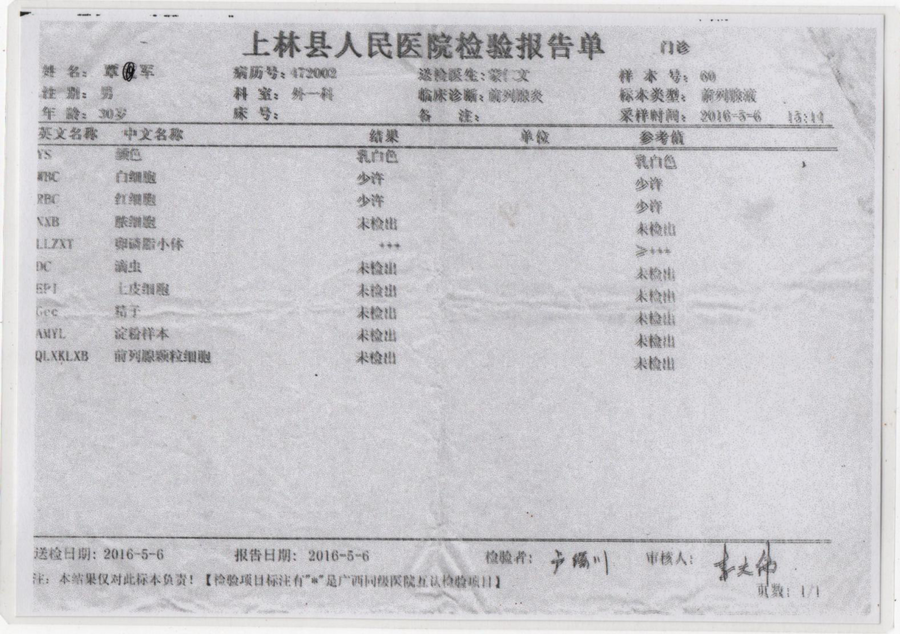 上林县人民医院检验报告单 门诊
姓 名: 覃 军 病历号: 472002 送检医生: 蒙仁文 样 本 号: 60
性 别: 男 科 室: 外一科 临床诊断: 前列腺炎 标本类型: 前列腺液
年 龄: 30岁 床 号: 备 注: 采样时间: 2016-5-6 15:14
英文名称 中文名称 结果 单位 参考值
YS 颜色 乳白色 乳白色
WBC 白细胞 少许 少许
RBC 红细胞 少许 少许
NXB 脓细胞 未检出 未检出
LLZXT 卵磷脂小体 +++ ≥+++
DC 滴虫 未检出 未检出
EPI 上皮细胞 未检出 未检出
精子 未检出 未检出
AMYL 淀粉样本 未检出 未检出
QLXKLXB 前列腺颗粒细胞 未检出 未检出
送检日期: 2016-5-6 报告日期: 2016-5-6 检验者: 审核人:
注: 本结果仅对此标本负责!【检验项目标注有"*"是广西同级医院互认检验项目】 页数: 1/1